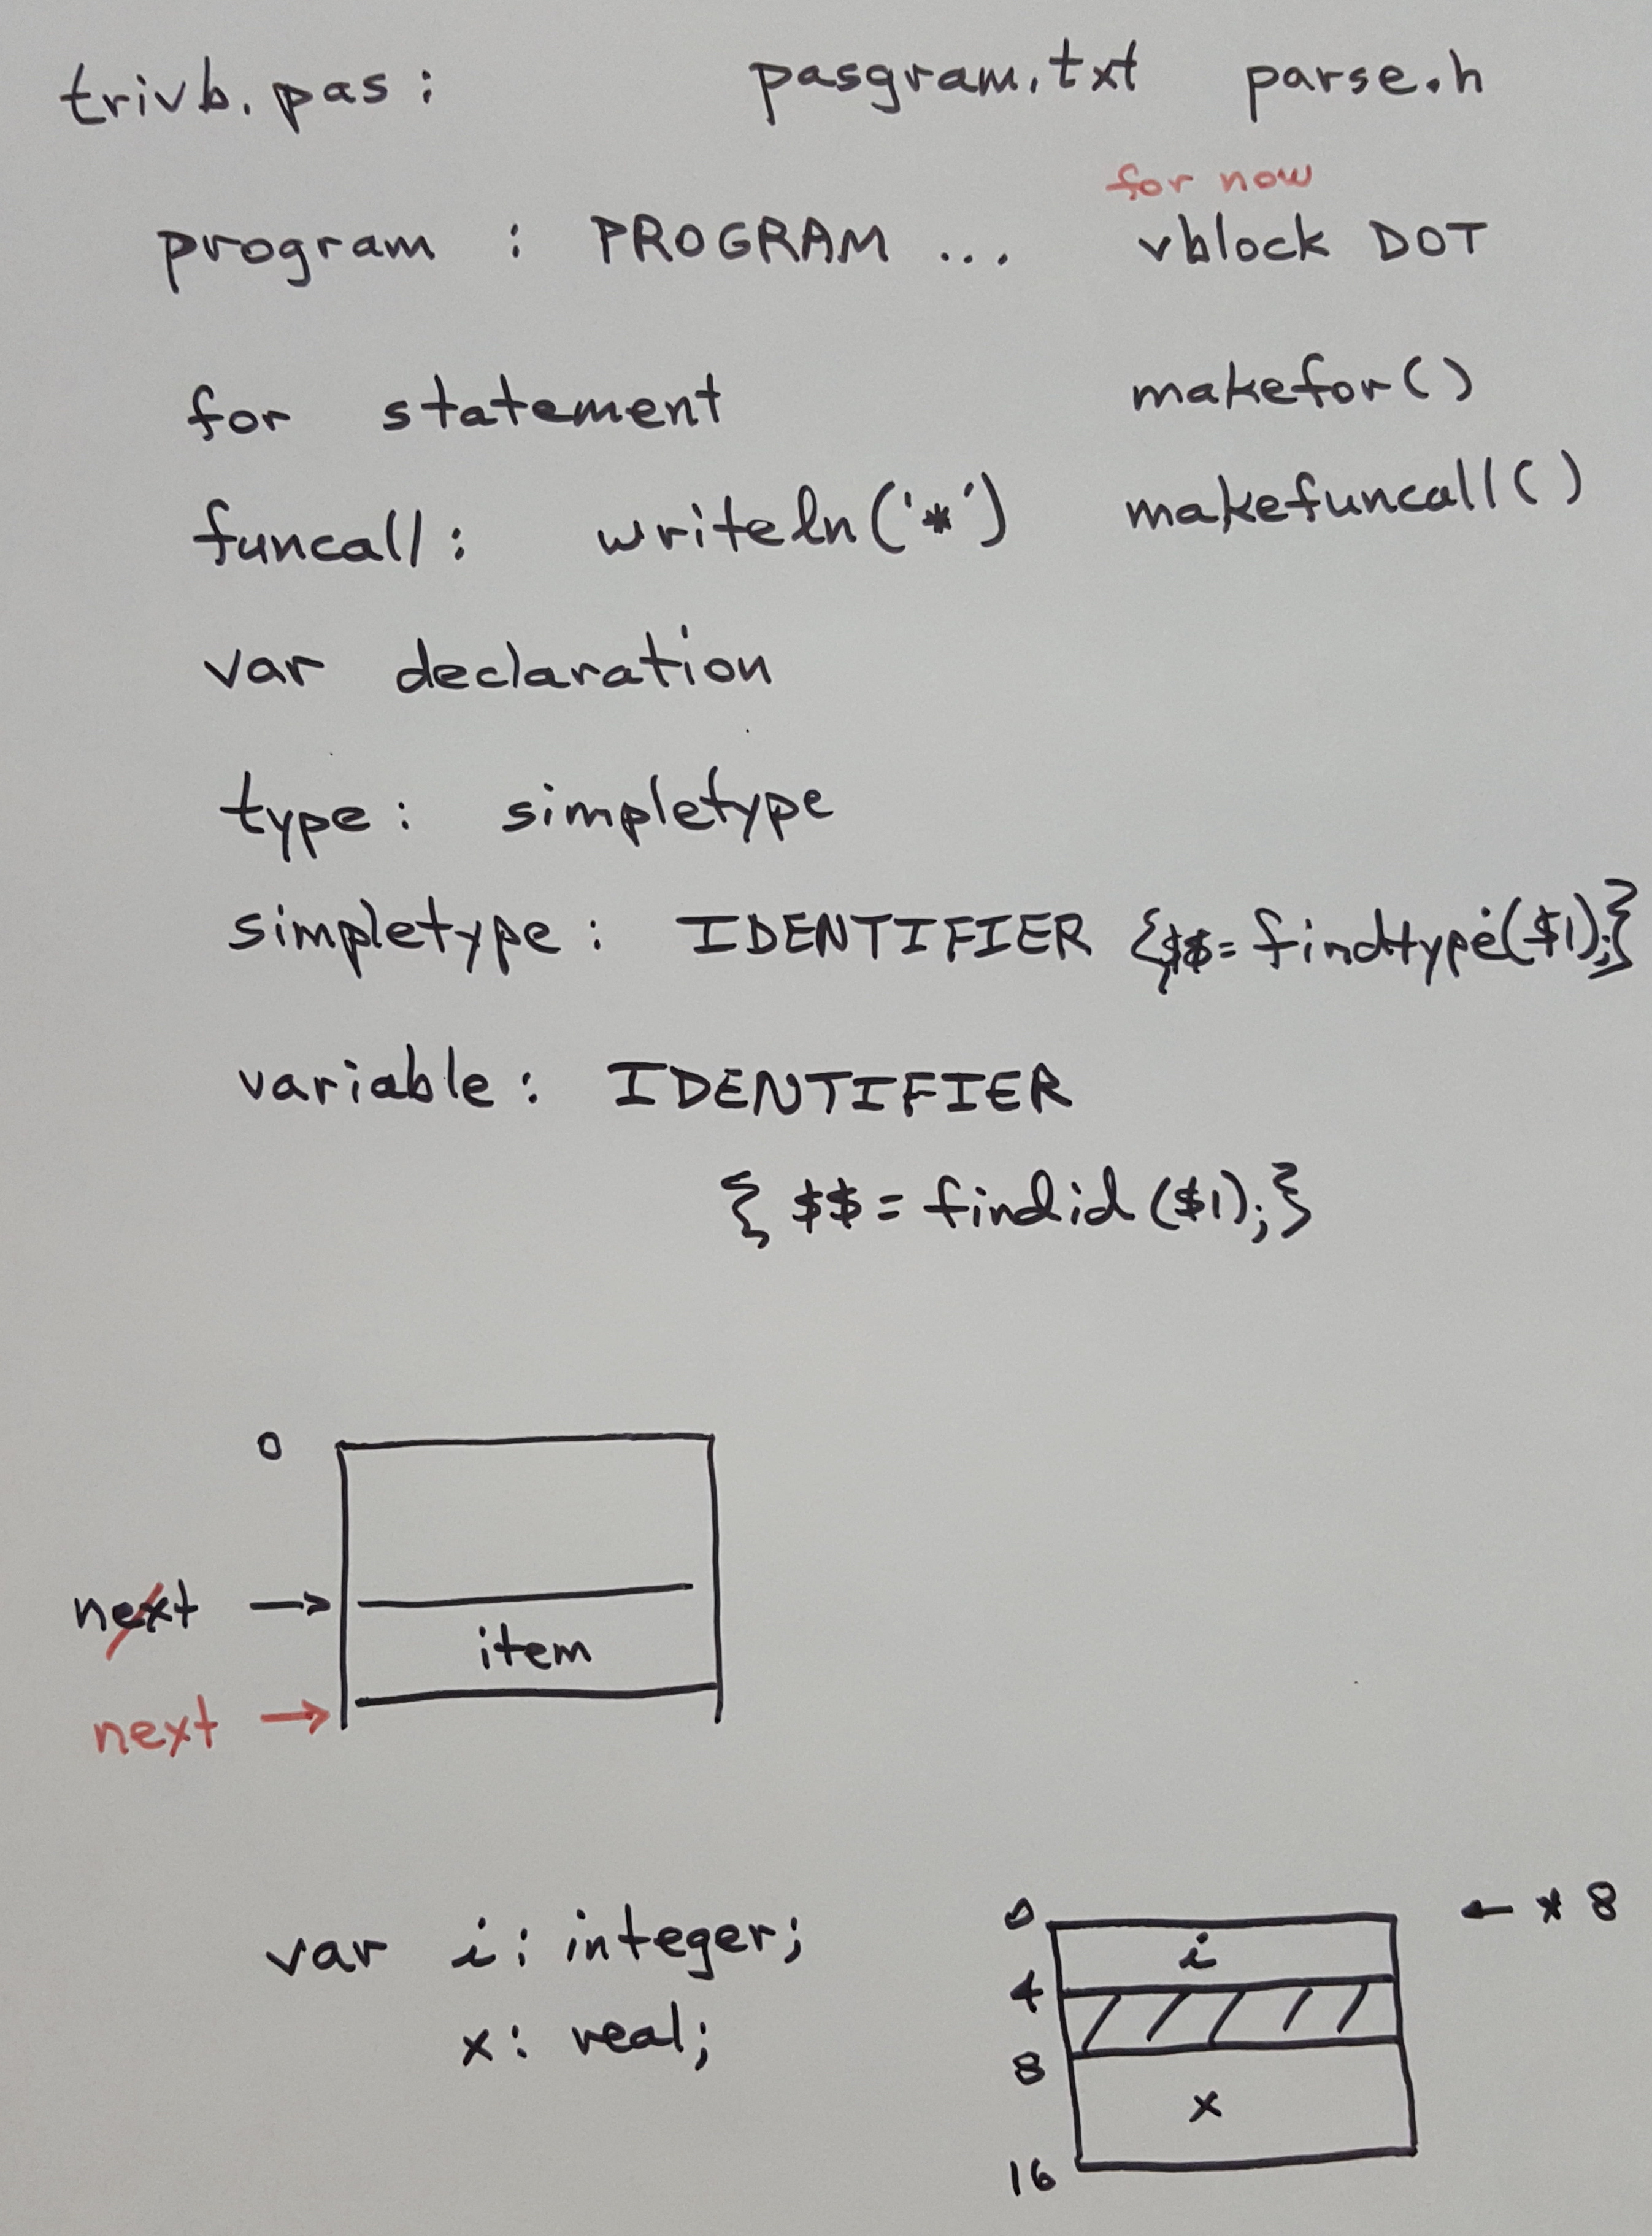 trivb.pas: pasgram.txt parse.h
for now
program : PROGRAM ... vblock DOT
for statement makefor()
funcall: writeln('*') makefuncall()
var declaration
type: simpletype
simpletype: IDENTIFIER {$$=findtype($1);}
variable: IDENTIFIER
{ $$ = findid ($1);}
0
next →
item
next →
0 ← * 8
var i: integer; i
4
x: real;
8
x
16